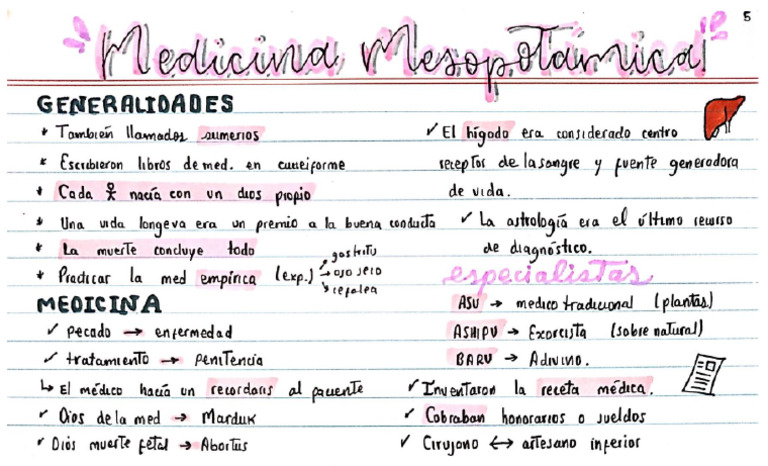 5
Medicina Mesopotámica
GENERALIDADES
* También llamados sumerios
* Escribieron libros de med. en cuneiforme
* Cada nacía con un dios propio
* Una vida longeva era un premio a la buena conducta
* La muerte concluye todo
* Practicar la med empírica (exp.)
gastritis
ojo seco
cefalea
MEDICINA
✓ pecado → enfermedad
✓ tratamiento → penitencia
↳ El médico hacía un recordaris al paciente
✓ Dios de la med → Marduk
✓ Dios muerte fetal → Abortus
✓ El hígado era considerado centro
receptos de la sangre y fuente generadora
de vida.
✓ La astrología era el último recurso
de diagnóstico.
especialistas
ASU → medico tradicional (plantas)
ASHIPU → Exorcista (sobre natural)
BARU → Adivino.
✓ Inventaron la receta médica.
✓ Cobraban honorarios o sueldos
✓ Cirujano ↔ artesano inferior